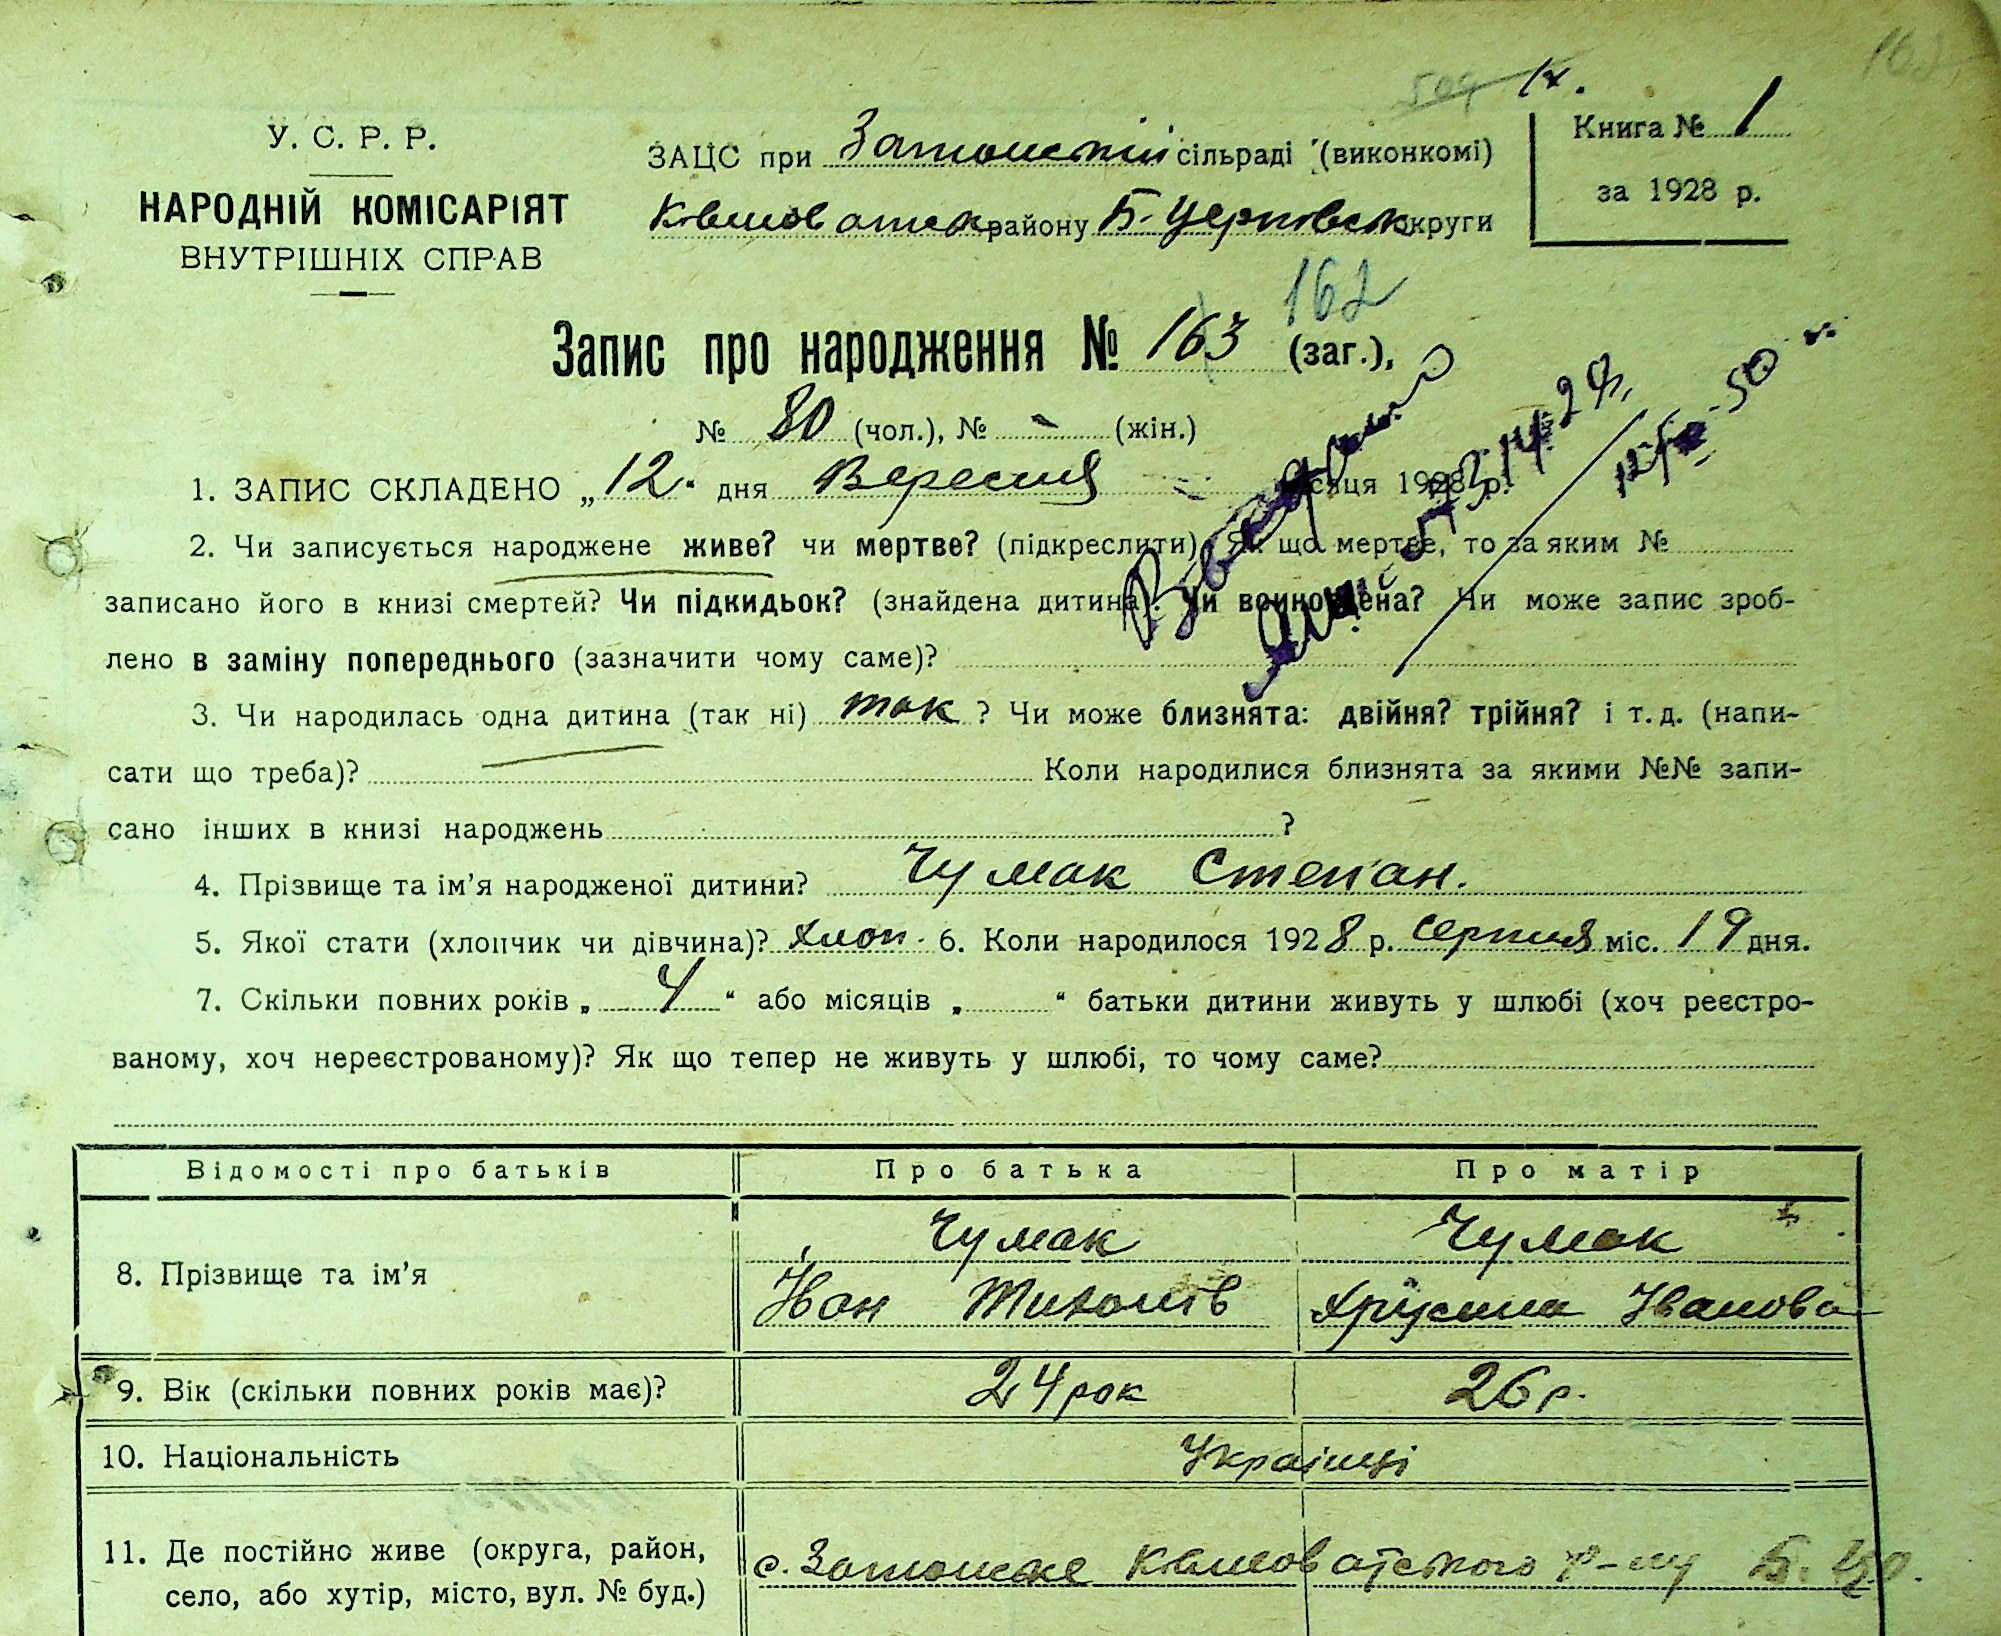 162
504 IX.
У. С. Р. Р.
НАРОДНІЙ КОМІСАРІЯТ
ВНУТРІШНІХ СПРАВ
ЗАЦС при Затонській сільраді (виконкомі)
району Б-Церківськ округи
Книга № 1
за 1928 р.
162
Запис про народження № 163 (заг.),
№ 80 (чол.), № - (жін.)
1. ЗАПИС СКЛАДЕНО „12“ дня Вересня місяця 1928 р.
2. Чи записується народжене живе? чи мертве? (підкреслити). Як що мертве, то за яким №
записано його в книзі смертей? Чи підкидьок? (знайдена дитина). Чи вбиновлена? Чи може запис зроб-
лено в заміну попереднього (зазначити чому саме)?
3. Чи народилась одна дитина (так ні) так ? Чи може близнята: двійня? трійня? і т. д. (напи-
сати що треба)? Коли народилися близнята за якими №№ запи-
сано інших в книзі народжень ?
4. Прізвище та ім’я народженої дитини? Чумак Степан.
5. Якої стати (хлопчик чи дівчина)? хлоп. 6. Коли народилося 1928 р. серпня міс. 19 дня.
7. Скільки повних років „ 4 “ або місяців „ “ батьки дитини живуть у шлюбі (хоч реєстро-
ваному, хоч нереєстрованому)? Як що тепер не живуть у шлюбі, то чому саме?
Відомості про батьків Про батька Про матір
8. Прізвище та ім’я Чумак Чумак
Іван Тихонів Іванова
9. Вік (скільки повних років має)? 24 рок 26 р.
10. Національність Українці
11. Де постійно живе (округа, район,
село, або хутір, місто, вул. № буд.)
с. Затонське р-ну Б. Ц.